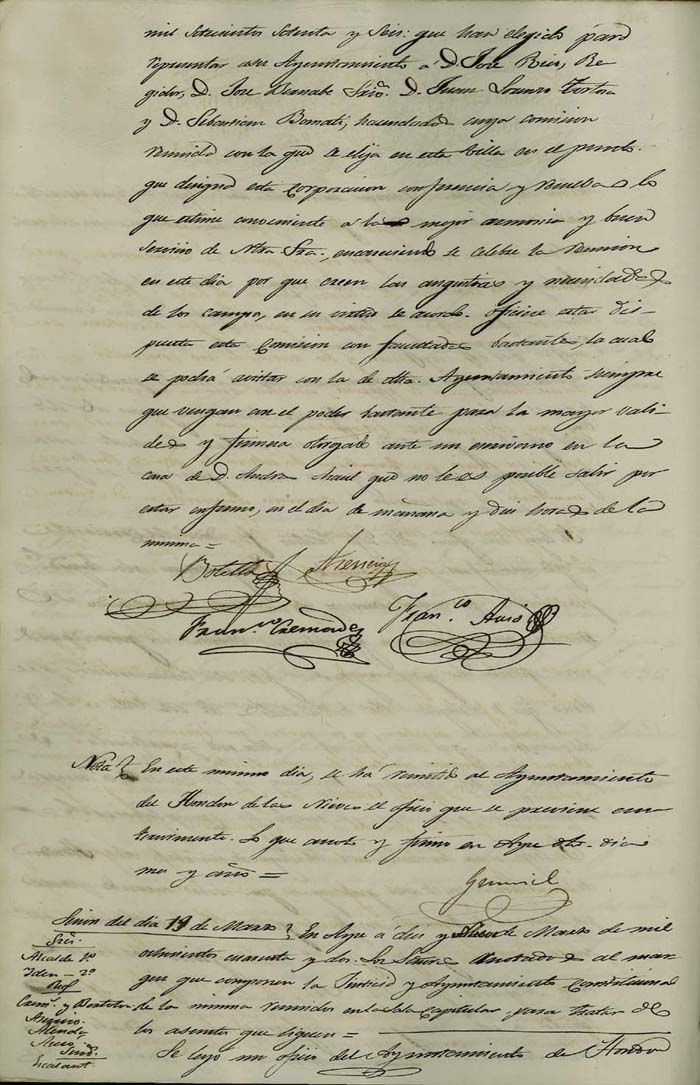 mil setecientos setenta y seis: que han elegido para
representar a ese Ayuntamiento á D. José Rico, Re-
gidor, D. Jose Bernabe Srio. D. Juan Lorenzo Tortosa
y D. Sebastian Bonati, hacendado cuya comision
reunida con la que se elija en esta Villa en el punto
que designe esta Corporacion conferencie y resuelva lo
que estime conveniente a la mejor armonia y buen
servicio de Ntra Sra., se celebre la reunion
en este dia por que crecen las angustias y necesidades
de los campos, en su virtud se acordo. oficiese estar dis-
puesta esta Comision con facultades bastantes, la cual
se podrá avistar con la de dha. Ayuntamiento siempre
que vengan con el poder bastante para la mayor vali-
dez y firmeza otorgado ante un escrivano en la
casa de D. que no le es posible salir por
estar enfermo, en el dia de mañana y diez horas de la
misma =
Botella
Fran.co Cremades Fran.co
Nota En este mismo dia, se ha remitido al Ayuntamiento
del Hondon de las Nieves el oficio que se previene an-
teriormente. Lo que anoto y firmo en Aspe dho. dia
mes y año =
Sesion del dia 19 de Marzo En Aspe a diez y nueve de Marzo de mil
ochocientos cuarenta y dos. Los Señores anotados al mar-
gen que componen la Justicia y Ayuntamiento Constitucional
de la misma reunidos en la Sala Capitular, para tratar de
los asuntos que siguen =
Se leyó un oficio del Ayuntamiento de Hondon
Sres.
Alcalde 1º
Iden - 2º
Cam. y Botella
Sind.
Escalant